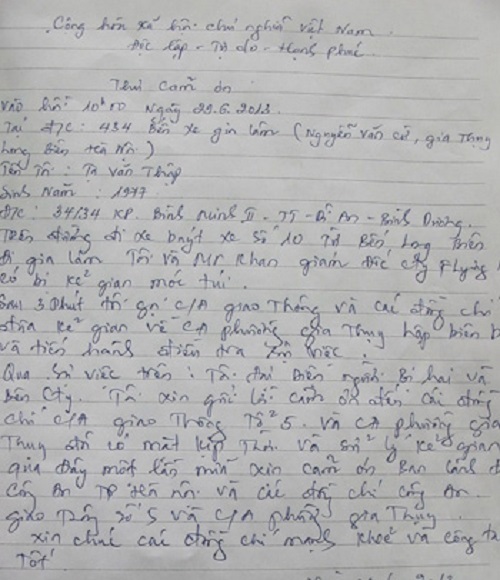 Cộng hòa xã hội chủ nghĩa việt Nam.
Độc lập - Tự do - Hạnh phúc.
Thư cảm ơn
vào hồi 10h00 Ngày 29.6.2013.
Tại Đ/C: 434 Bến xe gia lâm (Nguyễn văn cừ, gia Thụy
Long Biên Hà Nội)
Tên Tôi: Tạ Văn Thập
Sinh Năm: 1977
Đ/C: 34/34 KP. Bình Minh II - TT - Dĩ An - Bình Dương.
Trên đường đi xe buýt xe số 10 Từ Bến Long Biên
đi gia lâm Tôi và Mr Khan giám đốc cty
có bị kẻ gian móc túi.
Sau 3 Phút tôi gọi C/A giao Thông và các đồng chí
đưa kẻ gian về CA phường gia Thụy lập biên b
và tiến hành điều tra sự việc.
Qua sự việc trên: Tôi đại diện người bị hại và
bên cty. Tôi xin gửi lời cảm ơn đến các đồng
chí C/A giao Thông Tổ 5. và CA phường gia
Thụy đã có mặt kịp Thời và sử lý kẻ gian
qua đây một lần nữa xin cảm ơn Ban lãnh đ
Công An TP Hà nội và các đồng chí Công An.
giao Thông số 5 và C/A phường gia Thụy.
xin chúc các đồng chí mạnh khoẻ và công tá
Tốt